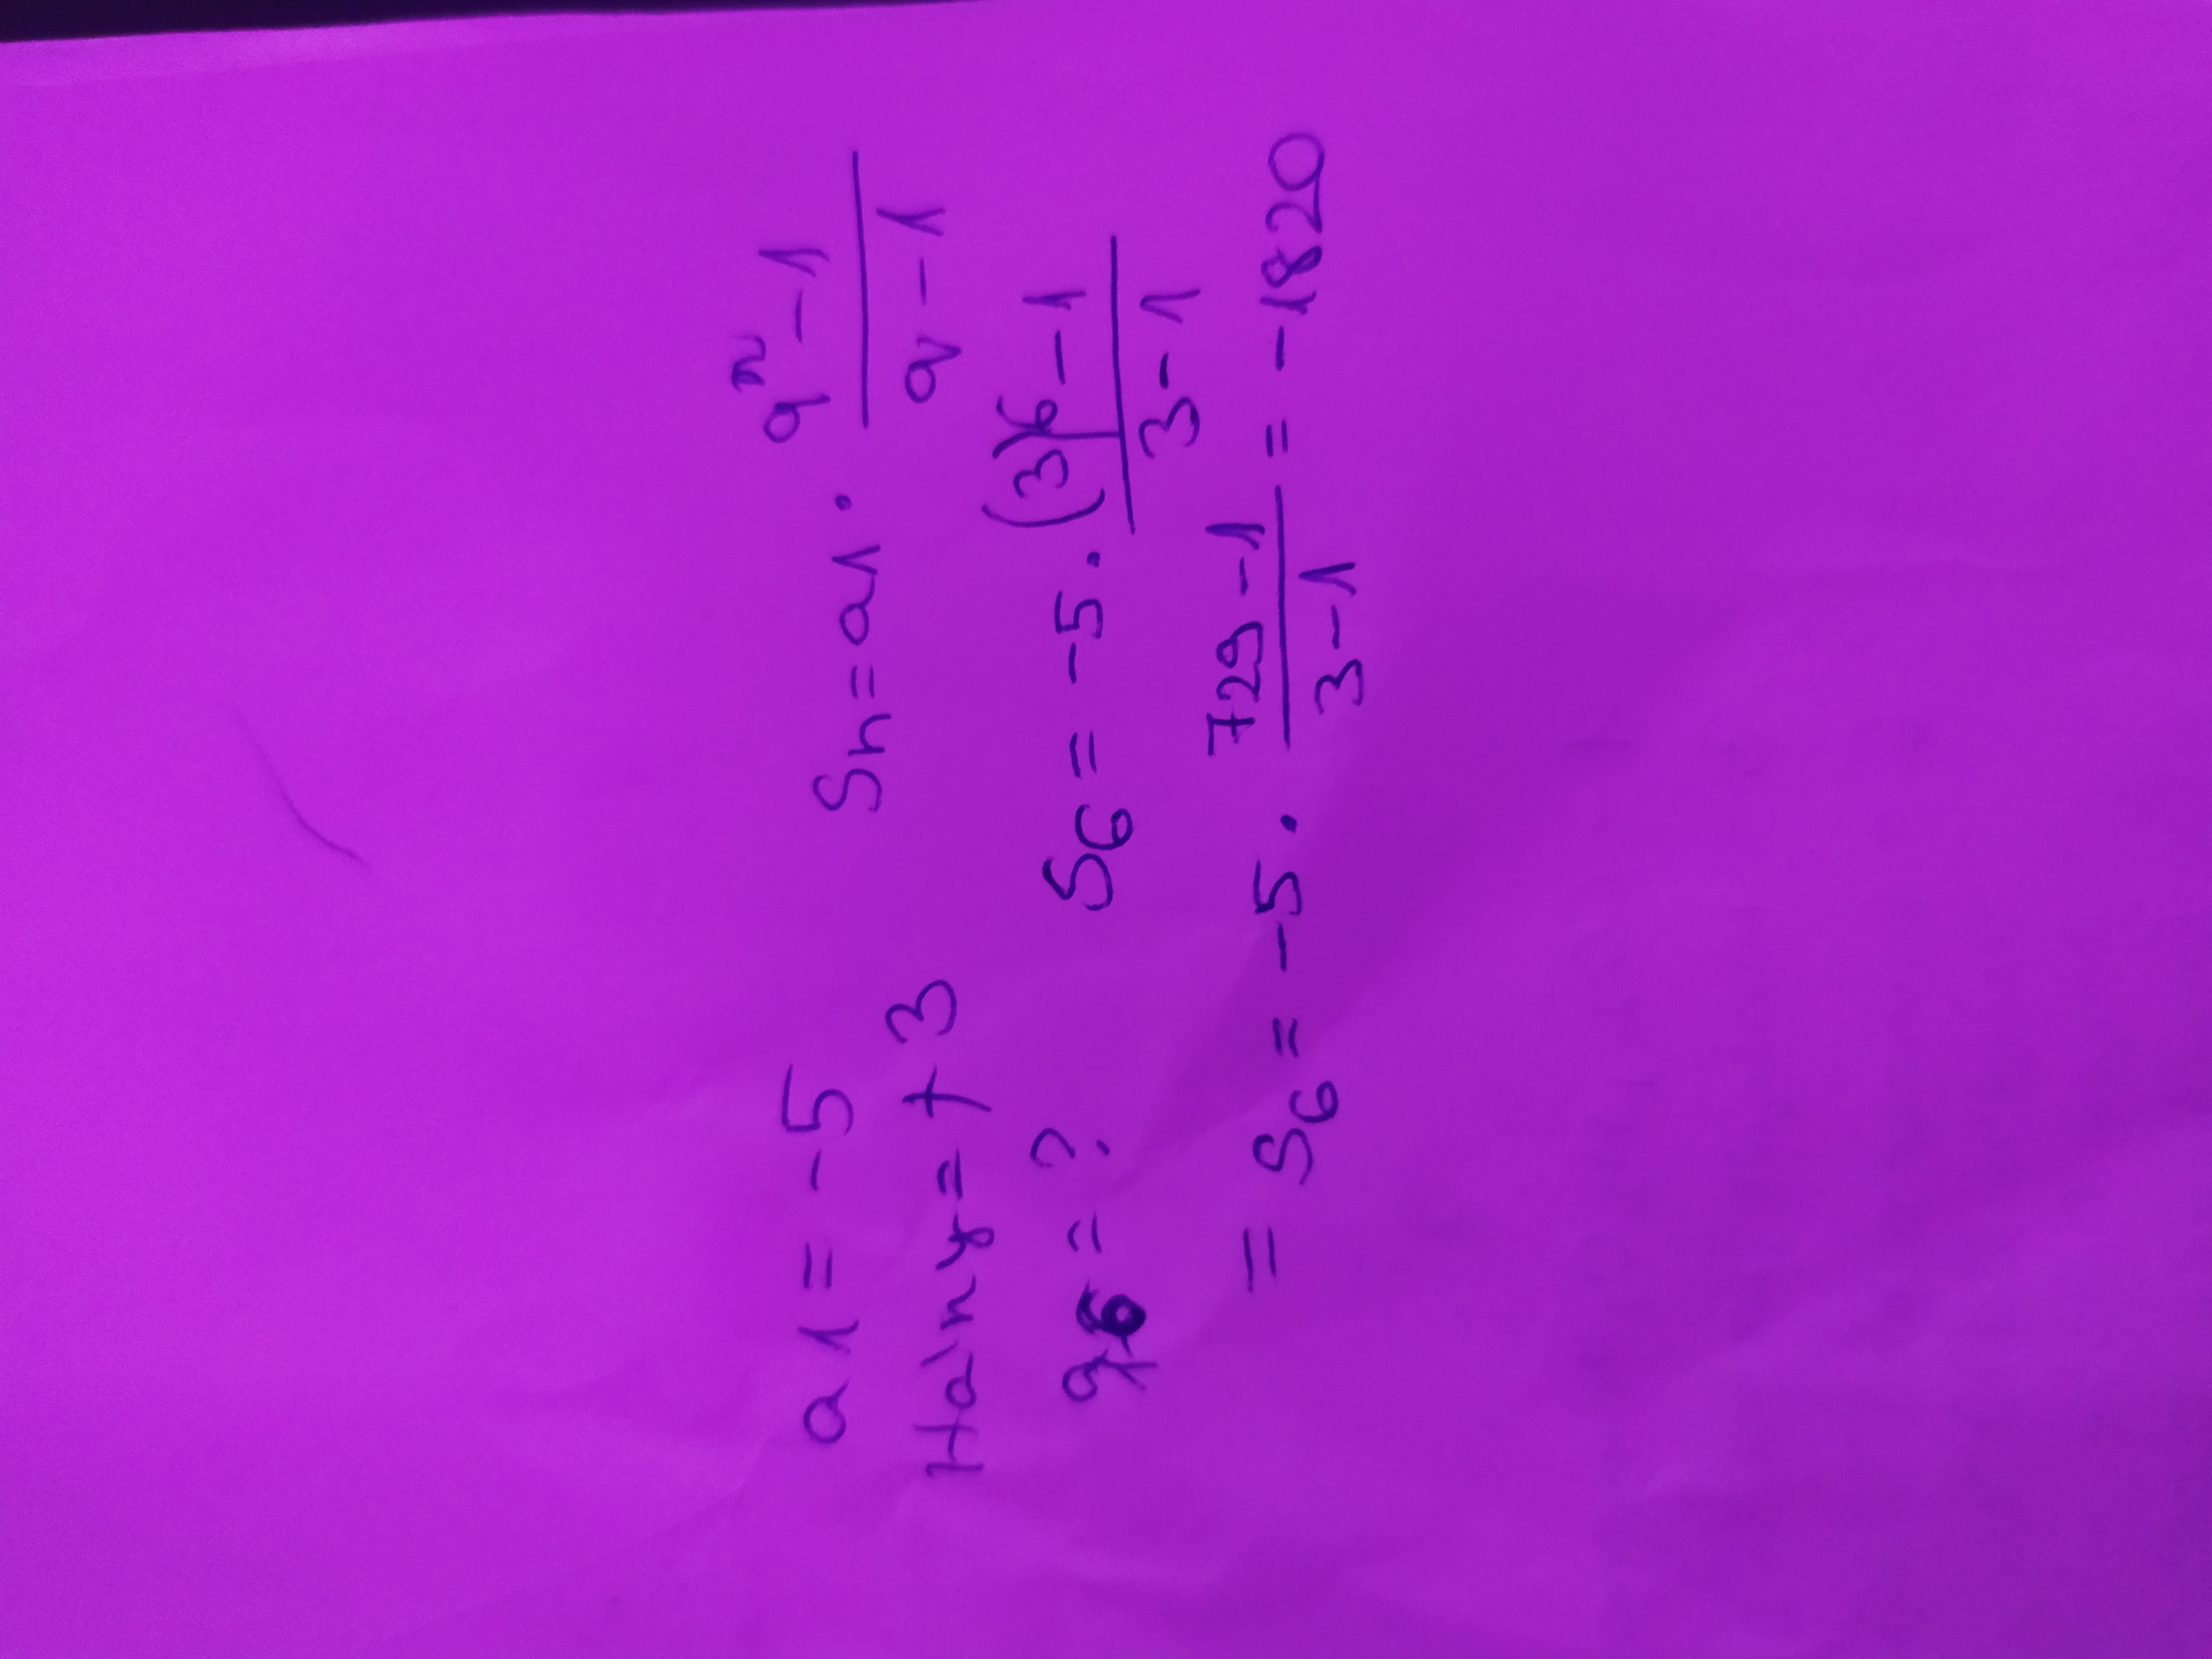 a1 = -5
Hány = +3
q6 = ?
Sn = a1 · qⁿ-1 / q-1
S6 = -5 · (3)⁶-1 / 3-1
= S6 = -5 · 729-1 / 3-1 = -1820